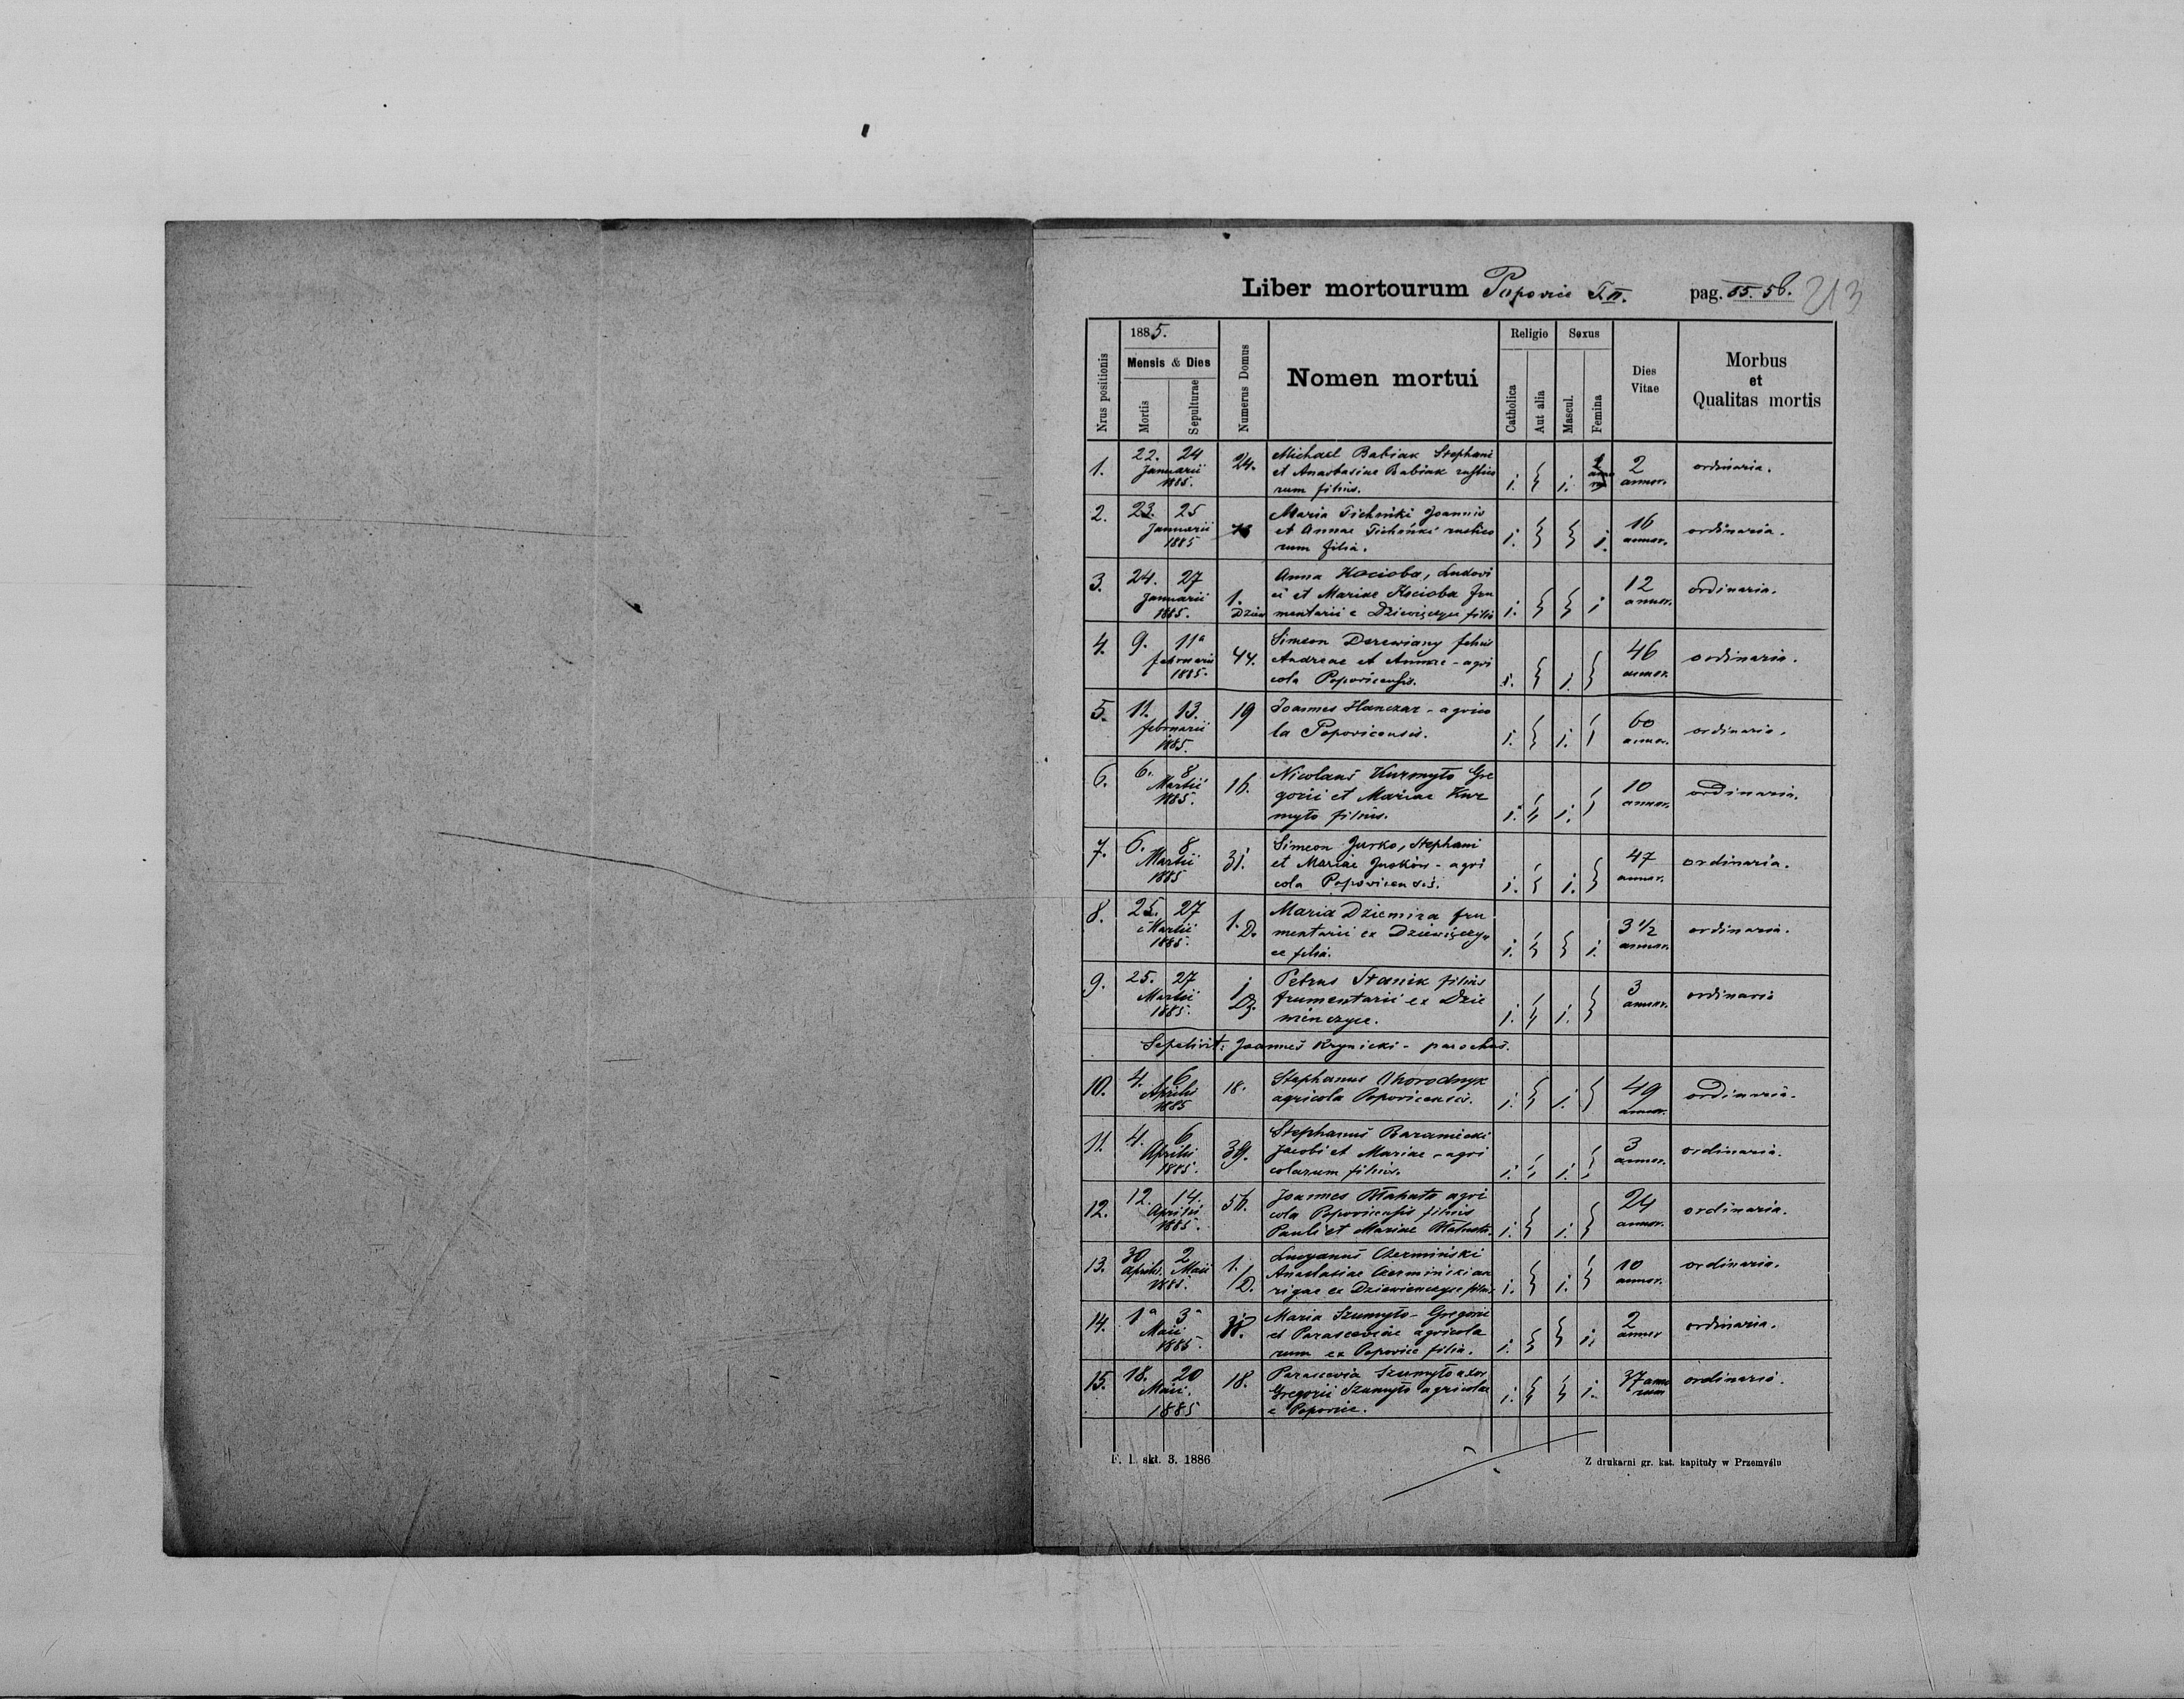 Liber mortourum Popovice T.II. pag. 55. 56. 213
1885.
Nrus positionis
Mensis & Dies
Mortis
Sepulturae
Numerus Domus
Nomen mortui
Religio
Catholica
Aut alia
Sexus
Mascul.
Femina
Dies
Vitae
Morbus
et
Qualitas mortis
1. 22. 24 Januarii 1885. 24. Michael Babiak Stephani
et Anastasiae Babiak rustico
rum filius. i. i. 2 annor. ordinaria.
2. 23. 25 Januarii 1885 Maria Tichoński Joannis
et Annae Tichoński rustico
rum filia. i. i. 16 annor. ordinaria.
3. 24. 27 Januarii 1885. 1. Dziew Anna Kocioba, Ludovi
ci et Mariae Kocioba fru
mentarii e Dziewięczyce filia i. i 12 annor. ordinaria.
4. 9. 11a februarii 1885. 44. Simeon Derewiany filius
Andreae et Annae - agri
cola Popovicensis. i. i. 46 annor. ordinaria.
5. 11. 13. februarii 1885. 19 Joannes Hanczar - agrico
la Popovicensis. i. i. 60 annor. ordinaria.
6. 6. 8 Martii 1885. 16. Nicolaus Kurmyło Gre
gorii et Mariae Kur
myło filius. i. i. 10 annor. ordinaria.
7. 6. 8 Martii 1885 31. Simeon Jurko, Stephani
et Mariae Jurków - agri
cola Popovicensis. i. i. 47 annor. ordinaria.
8. 25. 27 Martii 1885. 1. D. Maria Dziemira fru
mentarii ex Dziewięczy
ce filia. i. i. 3 1/2 annor. ordinaria.
9. 25. 27 Martii 1885. 1 Dz. Petrus Stanik filius
frumentarii ex Dzie
wienczyce. i. i. 3 annor. ordinaria
Sepelivit: Joannes Krynicki - parochus.
10. 4. 6 Aprilis 1885 18. Stephanus Ohorodnyk
agricola Popovicensis. i. i. 49 annor. ordinaria.
11. 4. 6 Aprilis 1885. 39. Stephanus Baraniecki
Jacobi et Mariae - agri
colarum filius. i. i. 3 annor. ordinaria.
12. 12. 14. Aprilis 1885. 56. Joannes agri
cola Popovicensis filius
Pauli et Mariae i. i. 24 annor. ordinaria.
13. 30 Aprilis. 2 Maii 1885. 1. D. Lucyanus Czermiński
Anastasiae Czermiński au
rigae ex Dziewienczyce filius i. i. 10 annor. ordinaria.
14. 1a 3a Maii 1885. Maria Szumyło - Gregorii
et Parasceviae agricola
rum ex Popovice filia. i. i. 2 annor ordinaria.
15. 18. 20 Maii. 1885 18. Parascevia Szumyło uxor
Gregorii Szumyło agricolae
e Popovice. i. i. 37 anno
rum ordinaria.
F. l. skł. 3. 1886
Z drukarni gr. kat. kapituły w Przemyślu